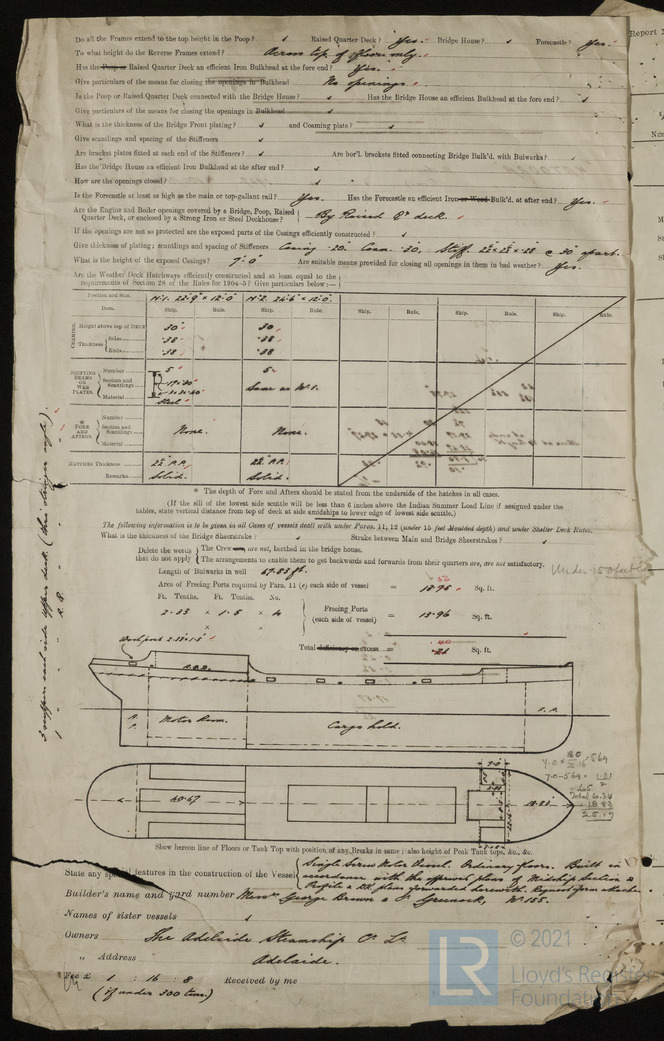 Do all the Frames extend to the top height in the Poop? Raised Quarter Deck? Yes. Bridge House? Forecastle? Yes.
To what height do the Reverse Frames extend? Across top of floors only.
Has the Poop or Raised Quarter Deck an efficient Iron Bulkhead at the fore end? Yes.
Give particulars of the means for closing the openings in Bulkhead No openings
Is the Poop or Raised Quarter Deck connected with the Bridge House? Has the Bridge House an efficient Bulkhead at the fore end?
Give particulars of the means for closing the openings in Bulkhead
What is the thickness of the Bridge Front plating? and Coaming plate?
Give scantlings and spacing of the Stiffeners
Are bracket plates fitted at each end of the Stiffeners? Are hor'l. brackets fitted connecting Bridge Bulk'd. with Bulwarks?
Has the Bridge House an efficient Iron Bulkhead at the after end?
How are the openings closed?
Is the Forecastle at least as high as the main or top-gallant rail? Yes. Has the Forecastle an efficient Iron or Wood Bulk'd. at after end? Yes.
Are the Engine and Boiler openings covered by a Bridge, Poop, Raised
Quarter Deck, or enclosed by a Strong Iron or Steel Deckhouse? By Raised Qr deck.
If the openings are not so protected are the exposed parts of the Casings efficiently constructed?
Give thickness of plating; scantlings and spacing of Stiffeners Casing .20. Coam. .30, Stiff. 2½ x 2½ x .28 @ 30" apart.
What is the height of the exposed Casings? 7'.0" Are suitable means provided for closing all openings in them in bad weather? Yes.
Are the Weather Deck Hatchways efficiently constructed and at least equal to the
requirements of Section 28 of the Rules for 1904-5? Give particulars below:—
Position and Size. No 1. 22'.9" x 12'.0" No 2. 24'.6" x 12'.0"
Item. Ship. Rule. Ship. Rule. Ship. Rule. Ship. Rule. Ship. Rule.
COAMING. Height above top of DECK 30" 30"
Thickness Sides .38 .38
Ends .38 .38
SHIFTING BEAMS OR WEB PLATES. Number 5 5
Section and Scantlings Same as No 1.
Material Steel
* FORE AND AFTERS. Number
Section and Scantlings None. None.
Material
HATCHES Thickness 2½" P.P. 2½" P.P.
Remarks Solid. Solid.
* The depth of Fore and Afters should be stated from the underside of the hatches in all cases.
(If the sill of the lowest side scuttle will be less than 6 inches above the Indian Summer Load Line if assigned under the
tables, state vertical distance from top of deck at side amidships to lower edge of lowest side scuttle.)
The following information is to be given in all Cases of vessels dealt with under Paras. 11, 12 (under 15 feet Moulded depth) and under Shelter Deck Rules.
What is the thickness of the Bridge Sheerstrake? Strake between Main and Bridge Sheerstrakes?
Delete the words that do not apply The Crew are, are not, berthed in the bridge house.
The arrangements to enable them to get backwards and forwards from their quarters are, are not satisfactory.
Length of Bulwarks in well 67.83 ft.
Area of Freeing Ports required by Para. 11 (e) each side of vessel = Sq. ft.
Ft. Tenths. Ft. Tenths. No.
2.33 x 1.5 x 4 Freeing Ports (each side of vessel) = 13.96 Sq. ft.
x x
Total deficiency or excess = Sq. ft.
Wash port 2.33 x 1.5
R.Q.D.
Motor Room.
Cargo hold.
60.67
18.83
Show hereon line of Floors or Tank Top with position of any Breaks in same; also height of Peak Tank tops, &c., &c.
State any special features in the construction of the Vessel Single Screw Motor Vessel. Ordinary floors. Built in
accordance with the approved plans of Midship Section &
Profile & Dk plans forwarded herewith. Request form attached.
Builder's name and yard number Messrs George Brown & Co Greenock, No 155.
Names of sister vessels
Owners The Adelaide Steamship Co Ld
„ Address Adelaide.
Fee £ 1 : 16 : 8 Received by me
(if under 300 tons.)
LR © 2021
Lloyd's Register
Foundation